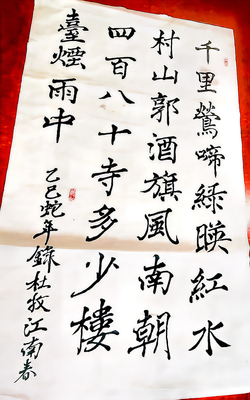 千里鶯啼緑暎紅水
村山郭酒旗風南朝
四百八十寺多少樓
臺煙雨中
乙巳蛇年錄杜牧江南春